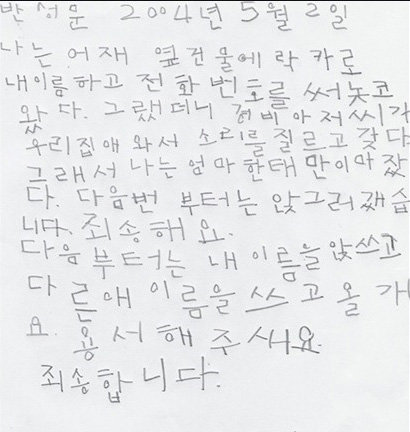 반성문 2004년 5월 2일
나는 어재 옆건물에 락카로
내이름하고 전화번호를 써놋코
왔다. 그랬더니 경비아저씨가
우리집애 와서 소리를 질르고 갓다
그래서 나는 엄마한태 만이마잤
다. 다음번 부터는 않그러갰습
니다. 죄송해요.
다음부터는 내 이름을 않쓰고
다른애 이름을 쓰고 올개
요. 용서해 주새요.
죄송합니다.